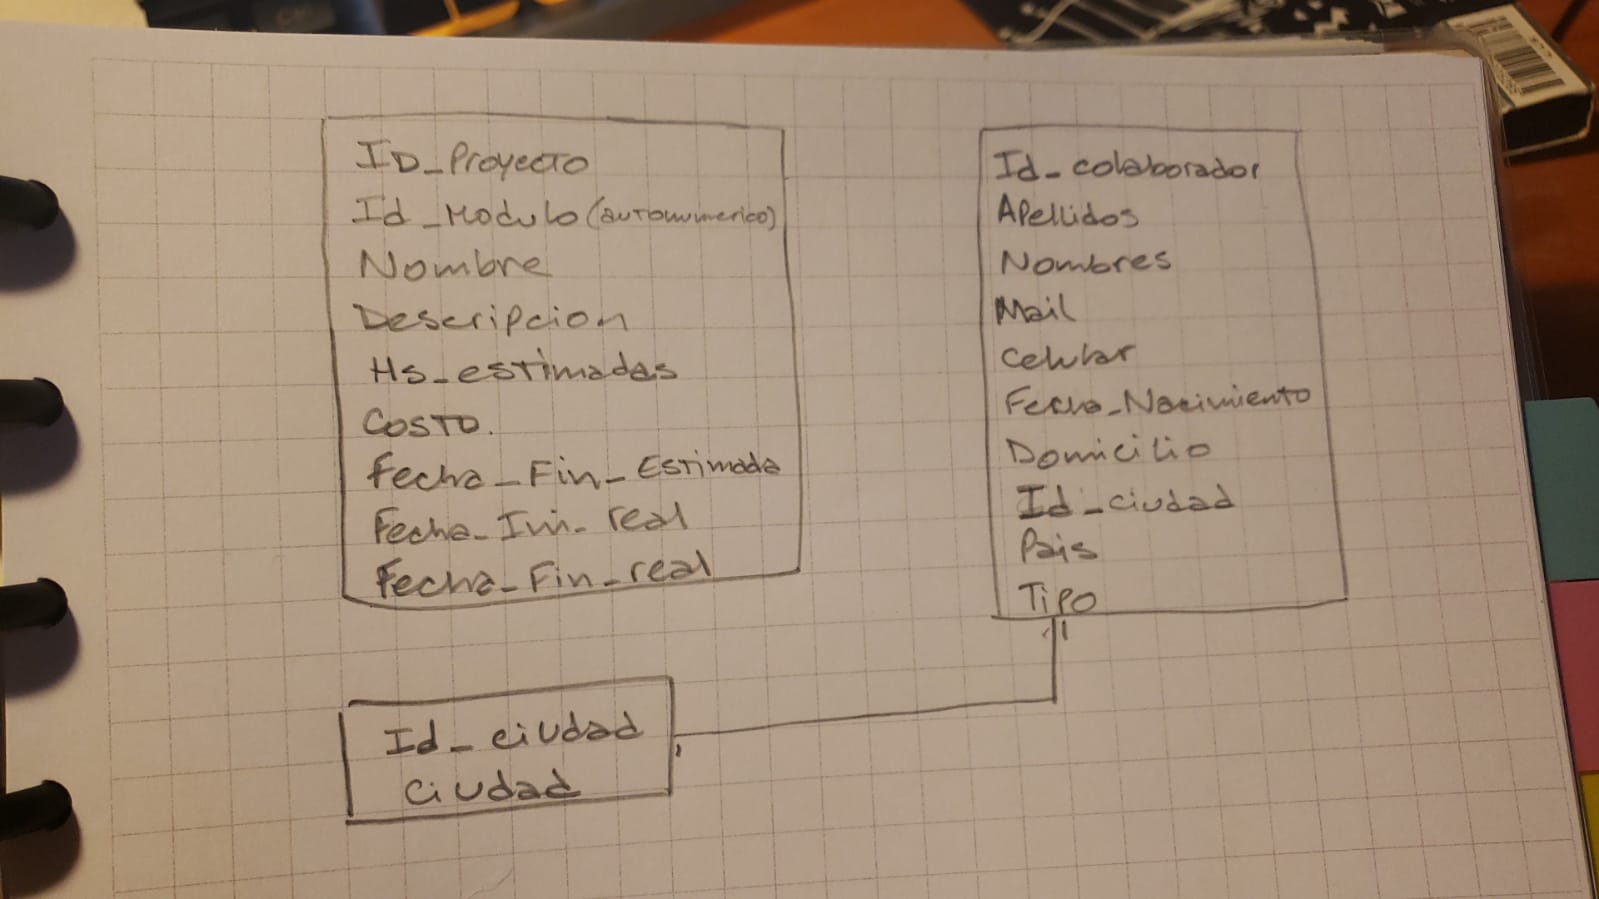 ID_Proyecto
Id_Modulo (autonumerico)
Nombre
Descripcion
Hs_estimadas
Costo.
Fecha_Fin_Estimada
Fecha_Ini_real
Fecha_Fin_real
Id_colaborador
Apellidos
Nombres
Mail
Celular
Fecha_Nacimiento
Domicilio
Id_ciudad
Pais
Tipo
Id_ciudad
Ciudad